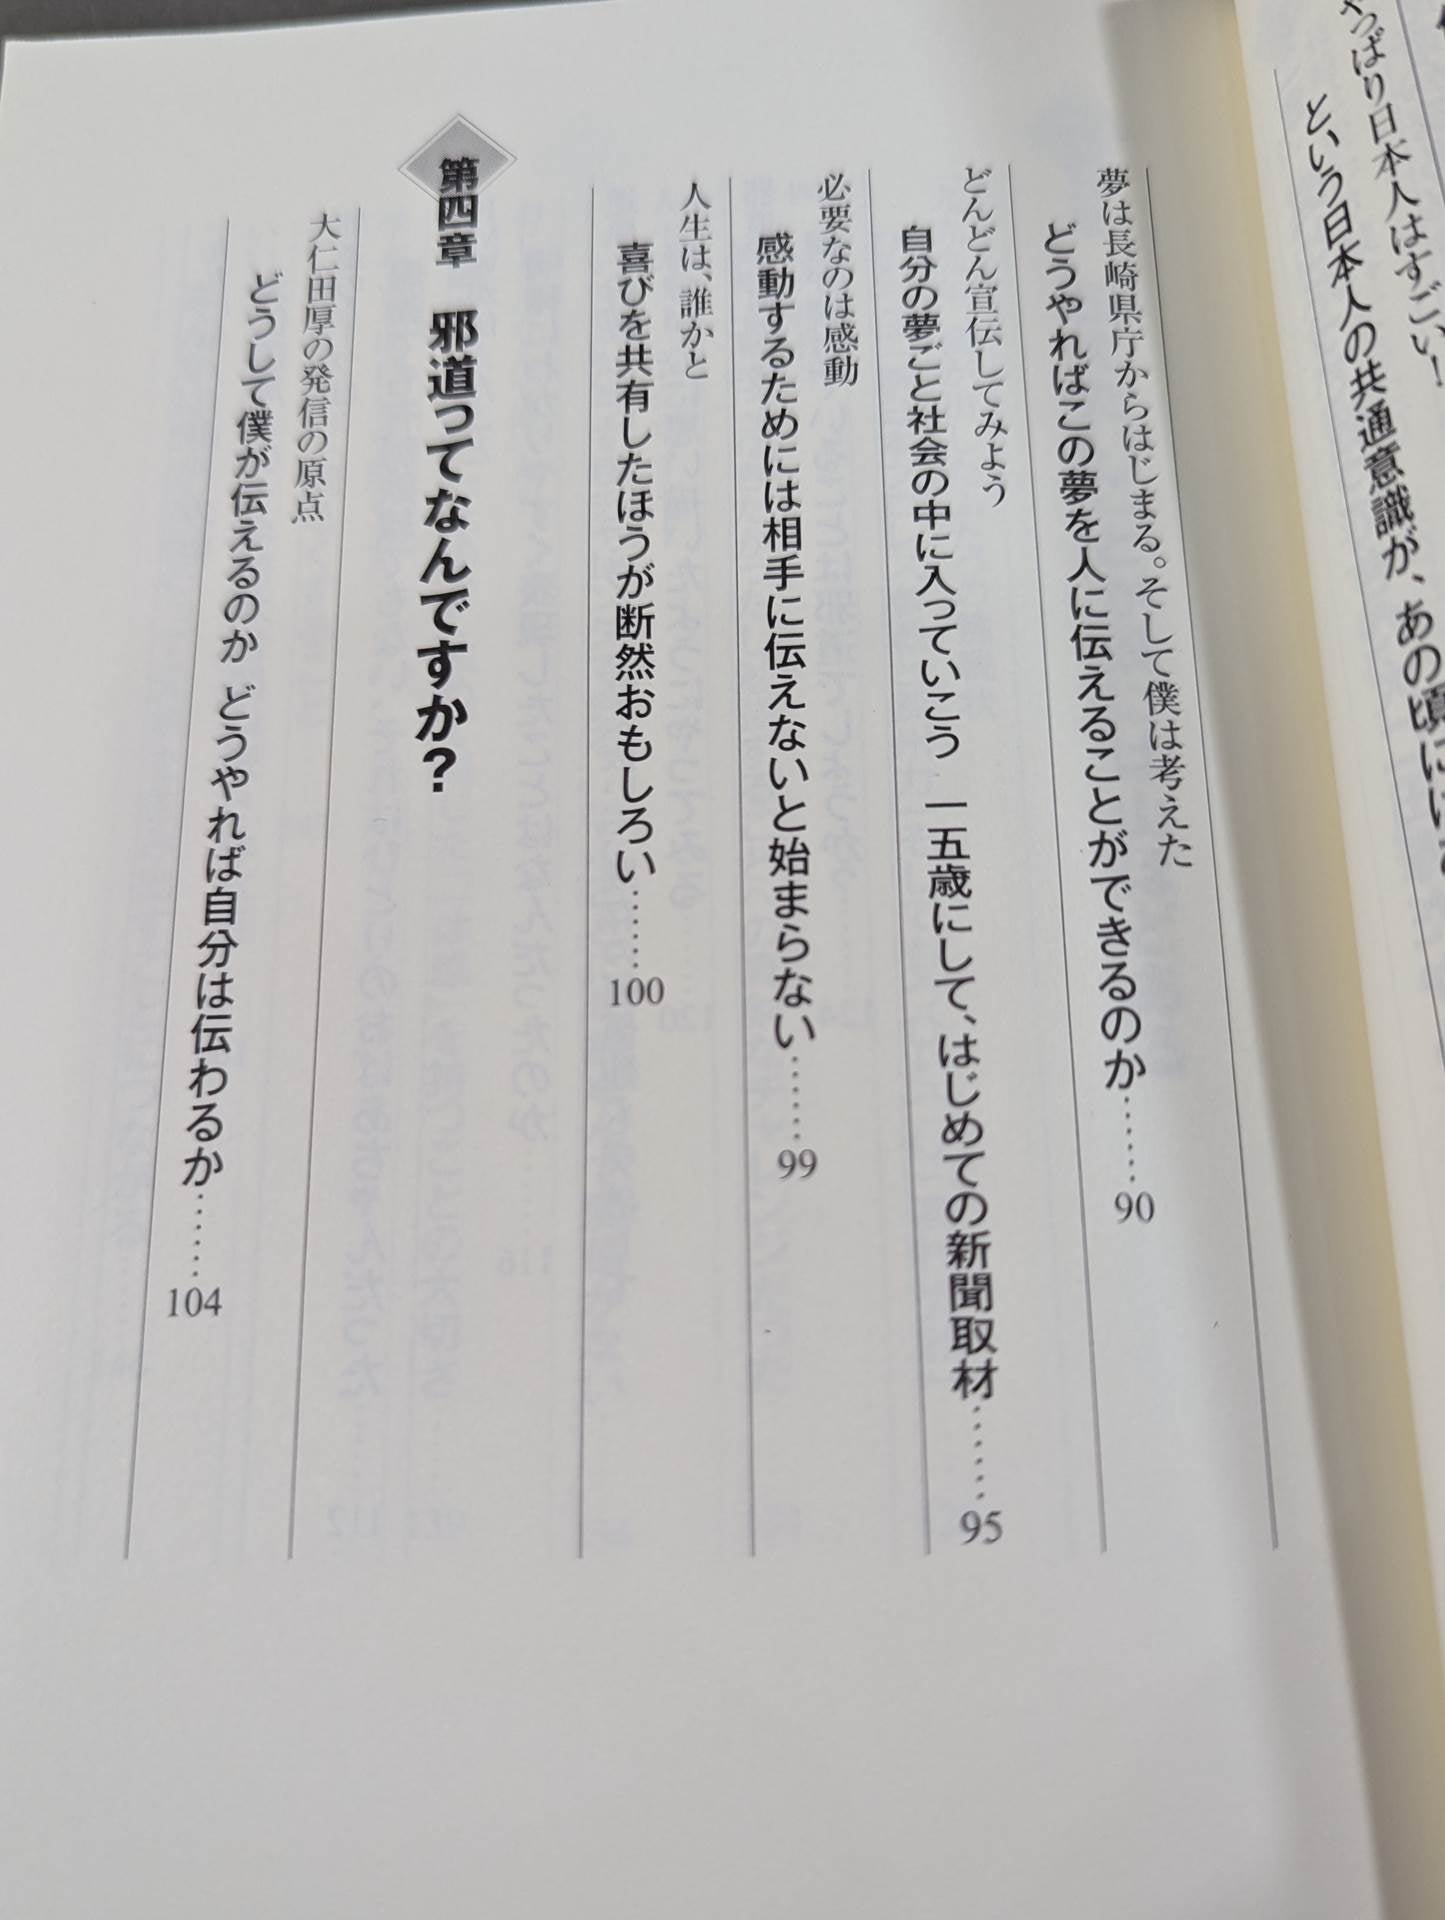 やっぱり日本人はすごい!
という日本人の共通意識が、あの頃に
夢は長崎県庁からはじまる。そして僕は考えた
どうやればこの夢を人に伝えることができるのか……90
どんどん宣伝してみよう
自分の夢ごと社会の中に入っていこう 一五歳にして、はじめての新聞取材……95
必要なのは感動
感動するためには相手に伝えないと始まらない……99
人生は、誰かと
喜びを共有したほうが断然おもしろい……100
第四章 邪道ってなんですか?
大仁田厚の発信の原点
どうして僕が伝えるのか どうやれば自分は伝わるか……104